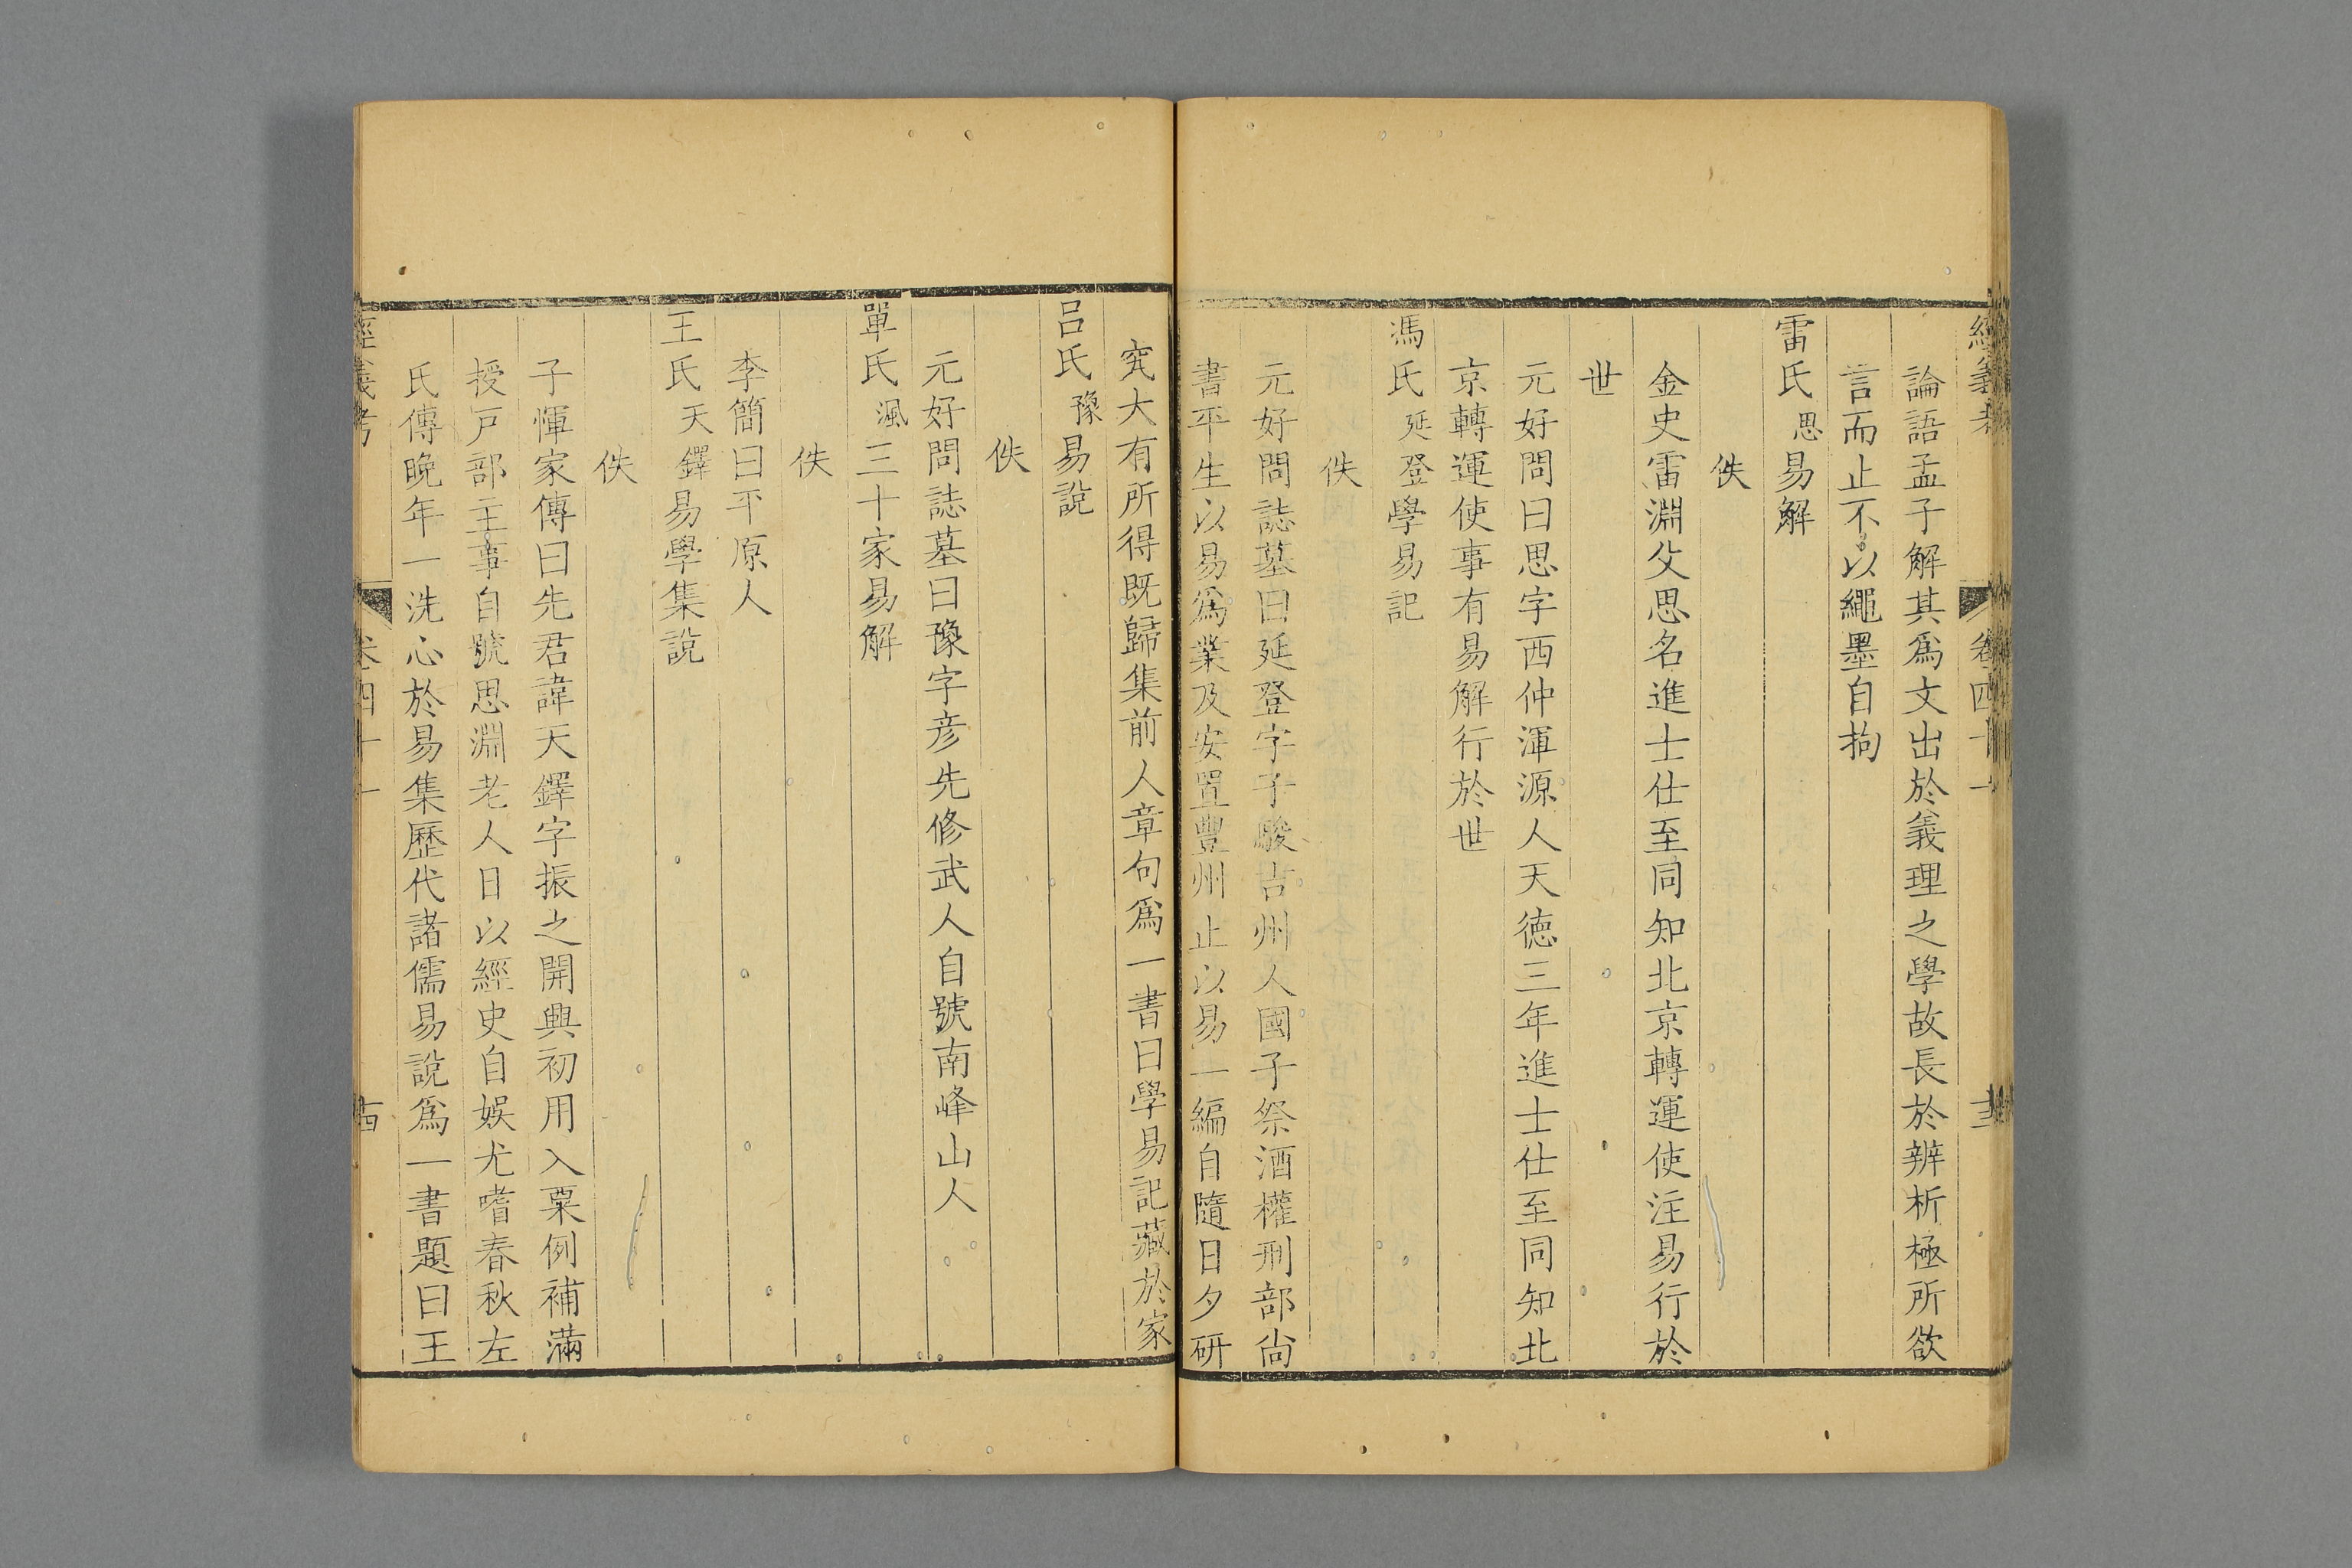 經義考 卷四十一 十三
論語孟子解其爲文出於義理之學故長於辨析極所欲
言而止不以繩墨自拘
雷氏思易解
佚
金史雷淵父思名進士仕至同知北京轉運使注易行於
世
元好問曰思字西仲渾源人天德三年進士仕至同知北
京轉運使事有易解行於世
馮氏延登學易記
佚
元好問誌墓曰延登字子駿吉州人國子祭酒權刑部尚
書平生以易爲業及安置豐州止以易一編自隨日夕研
究大有所得既歸集前人章句爲一書曰學易記藏於家
呂氏豫易說
佚
元好問誌墓曰豫字彦先修武人自號南峰山人
單氏渢三十家易解
佚
李簡曰平原人
王氏天鐸易學集說
佚
子惲家傳曰先君諱天鐸字振之開興初用入粟例補滿
授戸部主事自號思淵老人日以經史自娛尤嗜春秋左
氏傳晚年一洗心於易集歷代諸儒易說爲一書題曰王
經義考 卷四十一 十四